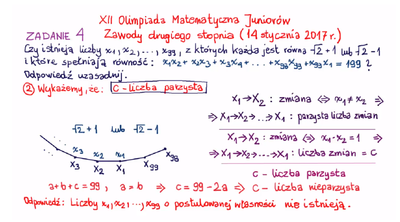 XII Olimpiada Matematyczna Juniorów
ZADANIE 4 Zawody drugiego stopnia (14 stycznia 2017 r.)
Czy istnieją liczby x₁, x₂, ..., x₉₉, z których każda jest równa √2+1 lub √2-1
i które spełniają równość: x₁x₂ + x₂x₃ + x₃x₄ + ... + x₉₈x₉₉ + x₉₉x₁ = 199 ?
Odpowiedź uzasadnij.
② Wykażemy, że: c - liczba parzysta
x₁→x₂ : zmiana ⇔ x₁≠x₂ ⇒
⇒ x₁→x₂→...→x₁ : parzysta liczba zmian
√2+1 lub √2-1
x₁→x₂ : zmiana ⇔ x₁·x₂ = 1 ⇒
⇒ x₁→x₂→...→x₁ : liczba zmian = c
x₃ x₂ x₁
x₃ x₂ x₁ x₉₉ x₉₈
c - liczba parzysta
a+b+c = 99, a = b ⇒ c = 99-2a ⇒ c - liczba nieparzysta
Odpowiedź: Liczby x₁, x₂, ..., x₉₉ o postulowanej własności nie istnieją.